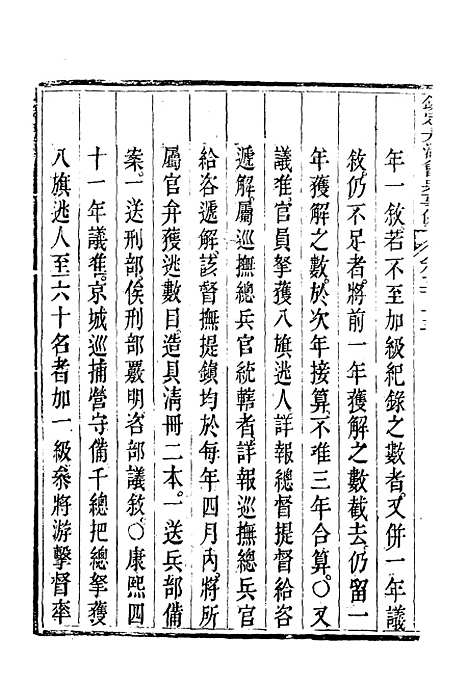 年一敘若不至加級紀錄之數者又併一年議
敘仍不足者將前一年獲解之數截去仍留一
年獲解之數於次年接算不准三年合算〇又
議准官員拏獲八旗逃人詳報總督提督給咨
遞解屬巡撫總兵官統轄者詳報巡撫總兵官
給咨遞解該督撫提鎮均於每年四月內將所
屬官弁獲逃數目造具清冊二本一送兵部備
案一送刑部俟刑部嚴明咨部議敘〇康熙四
十一年議准京城巡捕營守備千總把總拏獲
八旗逃人至六十名者加一級叅將游擊督率